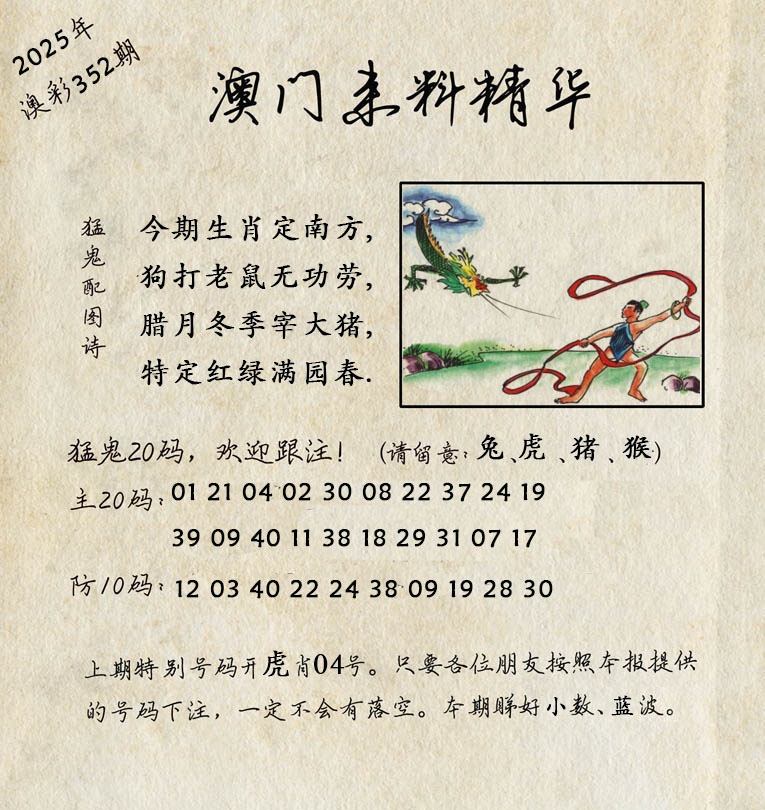 2025年
澳彩352期
澳门来料精华
猛鬼配图诗
今期生肖定南方,
狗打老鼠无功劳,
腊月冬季宰大猪,
特定红绿满园春.
猛鬼20码，欢迎跟注！（请留意：兔、虎、猪、猴）
主20码：01 21 04 02 30 08 22 37 24 19
39 09 40 11 38 18 29 31 07 17
防10码：12 03 40 22 24 38 09 19 28 30
上期特别号码开虎肖04号。只要各位朋友按照本报提供
的号码下注，一定不会有落空。本期睇好小数、蓝波。